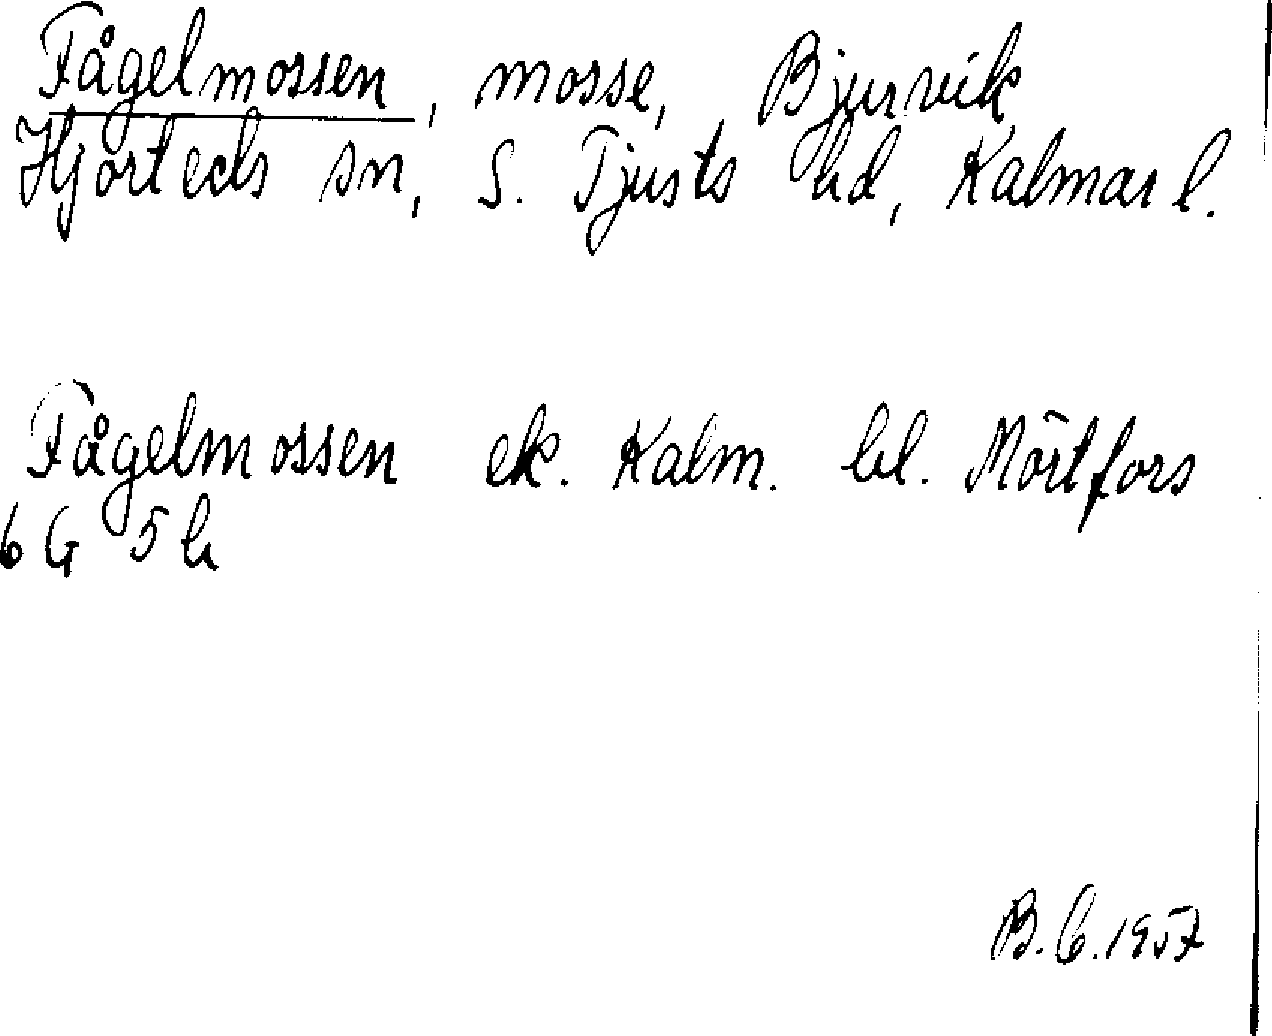 Fågelmossen, mosse, Bjurvik
Hjorteds sn, S. Tjusts hd, Kalmar l.
Fågelmossen ek. Kalm. bl. Mörtfors
6 G 5 h
B.C. 1957